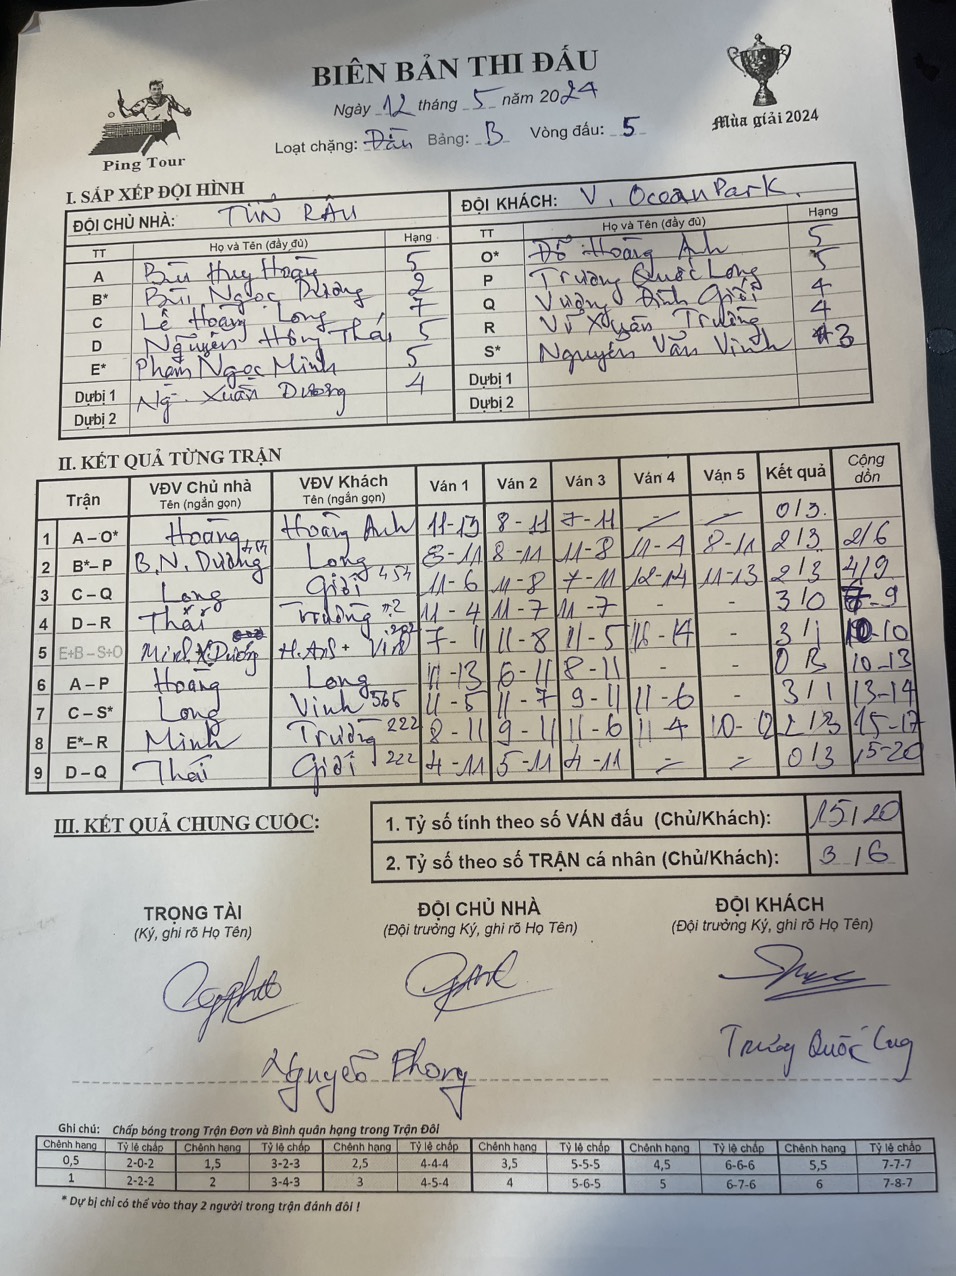 BIÊN BẢN THI ĐẤU
Ngày 12 tháng 5 năm 2024
Loạt chặng: Dần Bảng: B Vòng đấu: 5
Ping Tour
Mùa giải 2024
I. SẮP XẾP ĐỘI HÌNH
ĐỘI CHỦ NHÀ: TÙN RÂU
TT Họ và Tên (đầy đủ) Hạng
A Bùi Huy Hoàng 5
B* Bùi Ngọc Dương 2
C Lê Hoàng Long 7
D Nguyễn Hồng Thái 5
E* Phạm Ngọc Minh 5
Dựbị 1 Ng. Xuân Dương 4
Dựbị 2
ĐỘI KHÁCH: V. OceanPark.
TT Họ và Tên (đầy đủ) Hạng
O* Đỗ Hoàng Anh 5
P Trương Quốc Long 5
Q Vương Đình Giỏi 4
R Vi Xuân Trường 4
S* Nguyễn Văn Vinh 3
Dựbị 1
Dựbị 2
II. KẾT QUẢ TỪNG TRẬN
Trận VĐV Chủ nhà VĐV Khách Ván 1 Ván 2 Ván 3 Ván 4 Ván 5 Kết quả Cộng dồn
Tên (ngắn gọn) Tên (ngắn gọn)
1 A – O* Hoàng Hoàng Anh 11-13 8-11 7-11 - - 0/3.
2 B*– P B.N. Dương 454 Long 8-11 8-11 11-8 11-4 8-11 2/3 2/6
3 C – Q Long Giỏi 454 11-6 11-8 7-11 12-14 11-13 2/3 4/9
4 D – R Thái Trường 11-4 11-7 11-7 - - 3/0 7-9
5 E+B – S+O Minh X Dương H.Anh + Vinh 7-11 11-8 11-5 16-14 - 3/1 10-10
6 A – P Hoàng Long 11-13 6-11 8-11 - - 0/3 10-13
7 C – S* Long Vinh 565 11-5 11-7 9-11 11-6 - 3/1 13-14
8 E*– R Minh Trường 222 8-11 9-11 11-6 11-4 10-12 2/3 15-17
9 D – Q Thái Giỏi 222 4-11 5-11 4-11 - - 0/3 15-20
III. KẾT QUẢ CHUNG CUỘC:
1. Tỷ số tính theo số VÁN đấu (Chủ/Khách): 15/20
2. Tỷ số theo số TRẬN cá nhân (Chủ/Khách): 3/6
TRỌNG TÀI
(Ký, ghi rõ Họ Tên)
ĐỘI CHỦ NHÀ
(Đội trưởng Ký, ghi rõ Họ Tên)
ĐỘI KHÁCH
(Đội trưởng Ký, ghi rõ Họ Tên)
Nguyễn Phong
Trương Quốc Long
Ghi chú: Chấp bóng trong Trận Đơn và Bình quân hạng trong Trận Đôi
Chênh hạng Tỷ lệ chấp Chênh hạng Tỷ lệ chấp Chênh hạng Tỷ lệ chấp Chênh hạng Tỷ lệ chấp Chênh hạng Tỷ lệ chấp Chênh hạng Tỷ lệ chấp
0,5 2-0-2 1,5 3-2-3 2,5 4-4-4 3,5 5-5-5 4,5 6-6-6 5,5 7-7-7
1 2-2-2 2 3-4-3 3 4-5-4 4 5-6-5 5 6-7-6 6 7-8-7
* Dự bị chỉ có thể vào thay 2 người trong trận đánh đôi !